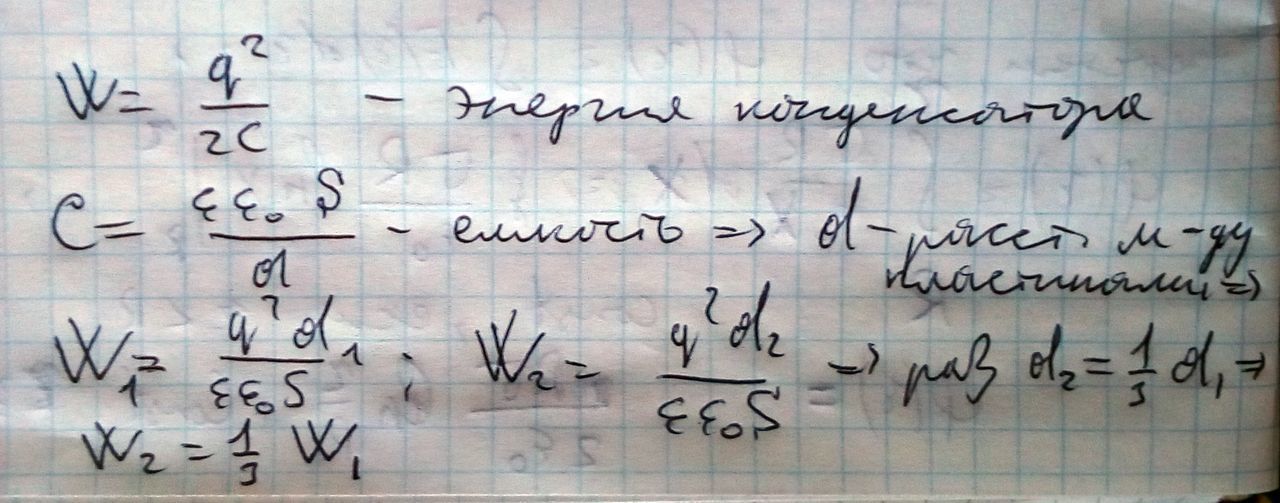 W = q²/2C – энергия конденсатора
C = εε₀S/d – емкость => d – расст. м-ду
пластинами =>
W₁ = q²d₁/εε₀S ; W₂ = q²d₂/εε₀S => раз d₂ = 1/3 d₁ =>
W₂ = 1/3 W₁